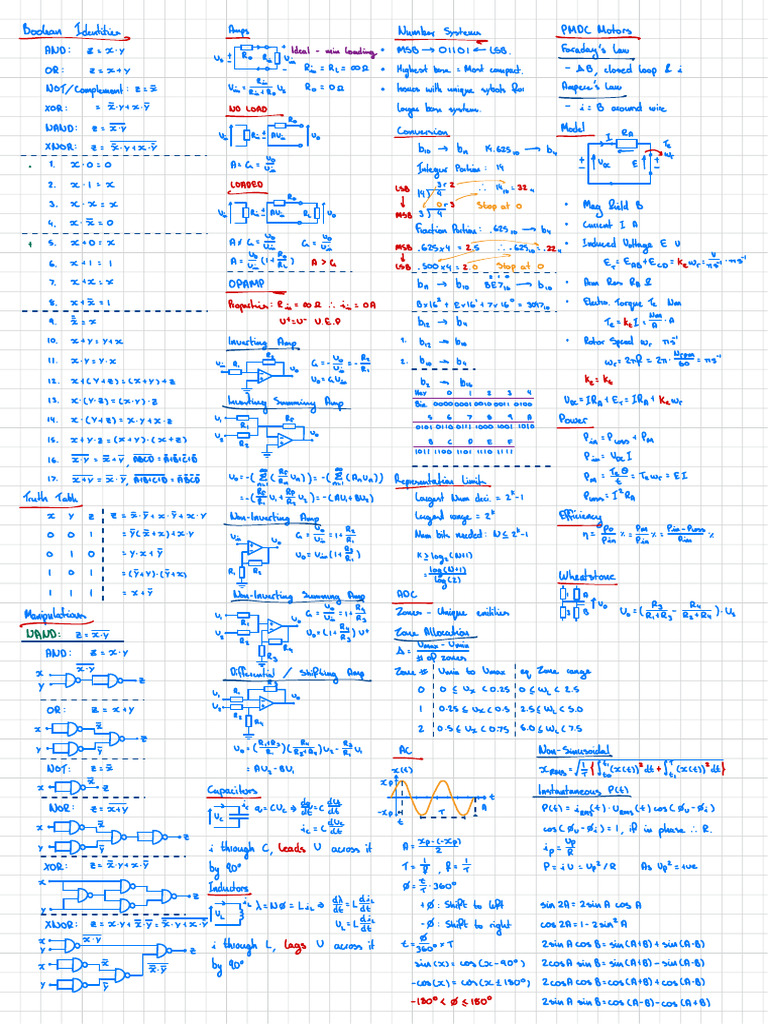 Boolean Identities
AND: z = x·y
OR: z = x+y
NOT/Complement: z = x̅
XOR: = x̅·y+x·y̅
NAND: z = \overline{x·y}
XNOR: z = \overline{x̅·y+x·y̅}
1. x·0 = 0
2. x·1 = x
3. x·x = x
4. x·x̅ = 0
5. x+0 = x
6. x+1 = 1
7. x+x = x
8. x+x̅ = 1
9. x̿ = x
10. x+y = y+x
11. x·y = y·x
12. x+(y+z) = (x+y)+z
13. x·(y·z) = (x·y)·z
14. x·(y+z) = x·y+x·z
15. x+y·z = (x+y)·(x+z)
16. \overline{x·y} = x̅+y̅, \overline{ABCD} = A̅+B̅+C̅+D̅
17. \overline{x+y} = x̅·y̅, \overline{A+B+C+D} = A̅B̅C̅D̅
Truth Table
x y z z = x̅·y̅+x·y̅+x·y
0 0 1
0 1 0 = y·x+y̅
1 0 1 = (y̅+y)·(y̅+x)
1 1 1 = x+y̅
Manipulations
NAND: z = \overline{x·y}
AND: z = x·y
x
y
\overline{x·y}
z
OR: z = x+y
x
y
x̅
y̅
z
NOT: z = x̅
x
x̅
NOR: z = \overline{x+y}
x
y
x̅
y̅
z
XOR: z = x̅·y+x·y̅
x
y
z
XNOR: z = x·y+x̅·y̅ = \overline{x̅·y+x·y̅}
x
y
\overline{x·y}
z
x
y
x̅
y̅
\overline{x̅·y̅}
Amps
Ideal – min loading
Rin = RL = ∞Ω
Ro = 0Ω
NO LOAD
A = G = Uo/Uin
LOADED
A ≠ G G = Uo/Uin
A = Uo/Uin (1+Ro/RL) A > G
OPAMP
Properties: Rin = ∞Ω ∴ iin = 0A
U⁺ = U⁻ V.E.P
Inverting Amp
G = -Uo/Uin = -R2/R1
Uo = G Uin
Inverting Summing Amp
= -(RF/R1 U1 + RF/R2 U2) = -(AU1+BU2)
Non-Inverting Amp
G = Uo/Uin = 1+R2/R1
Uo = Uin(1+R2/R1)
Non-Inverting Summing Amp
G = Uo/Uin = 1+R4/R3
Uo = (1+R4/R3) U⁺
Differential / Shifting Amp
Uo = (R1+R3/R1)(R4/R2+R4)U2 - R3/R1 U1
= AU2 - BU1
Capacitors
q = CUc ⇒ dq/dt = C dUc/dt
ic = C dUc/dt
i through C, leads U across it
by 90°
Inductors
λ = NΦ = L iL ⇒ dλ/dt = L diL/dt
UL = L diL/dt
i through L, lags U across it
by 90°
Number Systems
• MSB → 01101 ← LSB.
• Highest base = Most compact.
larger base systems.
Conversion
b10 → bn 14.625₁₀ → b4
Integer Portion: 14
LSB
MSB
3 r 2
∴ 14₁₀ = 32₄
0 r 3
Stop at 0
Fraction Portion: .625₁₀ → b4
MSB .625×4 = 2.5 ∴ .625₁₀ = .22₄
LSB .500×4 = 2.0 Stop at 0
bn → b10 BE7₁₆ → b10
B×16² + E×16¹ + 7×16⁰ = 3047₁₀
1.
2.
Hex 0 1 2 3 4
Bin 0000 0001 0010 0011 0100
5 6 7 8 9 A
0101 0110 0111 1000 1001 1010
B C D E F
1011 1100 1101 1110 1111
Representation Limits
Largest Num deci. = 2ᵏ-1
Largest range = 2ᵏ
Num bits needed: N ≤ 2ᵏ-1
K ≥ log₂(N+1)
= log(N+1)/log(2)
ADC
Zones – Unique entities
Zone Allocation
Δ = Umax - Umin / # of zones
Zone # Umin to Umax eq Zone range
0 0 ≤ Ux < 0.25 0 ≤ WL < 2.5
1 0.25 ≤ Ux < 0.5 2.5 ≤ WL < 5.0
2 0.5 ≤ Ux < 0.75 5.0 ≤ WL < 7.5
AC
x(t)
xp
-xp
t
T
A
A = xp-(-xp)/2
T = 1/f, f = 1/T
Ø = t/T · 360°
+Ø: Shift to left
-Ø: Shift to right
t = Ø/360° × T
sin(x) = cos(x-90°)
-cos(x) = cos(x±180°)
-180° < Ø ≤ 180°
PMDC Motors
Faraday's Law
- ΔB, closed loop & i
Ampere's Law
- i = B around wire
Model
• Mag Field B
• Current I A
• Induced Voltage E V
• Arm Res RA Ω
• Electro. Torque Te Nm
Te = kt I
• Rotor Speed ωr rs⁻¹
ωr = 2πf = 2π · Nrpm/60 = rs⁻¹
UDC = IRA + Er = IRA + ke ωr
Power
Pin = Ploss + PM
Pin = UDC I
PM = Teθ/t = Te ωr = EI
Ploss = I²RA
Efficiency
η = Po/Pin % = PM/Pin % = Pin-Ploss/Pin %
Wheatstone
Uo = (R3/R1+R3 - R4/R2+R4) · Us
Non-Sinusoidal
Instantaneous P(t)
P(t) = irms(t) · Urms(t) cos(Øu-Øi)
cos(Øu-Øi) = 1, if in phase ∴ R.
ip = Up/R
P = iU = Up²/R As Up² = +ve
sin 2A = 2 sin A cos A
cos 2A = 1-2sin²A
2 sin A cos B = sin(A+B) + sin(A-B)
2 cos A sin B = sin(A+B) - sin(A-B)
2 cos A cos B = cos(A+B) + cos(A-B)
2 sin A sin B = cos(A-B) - cos(A+B)